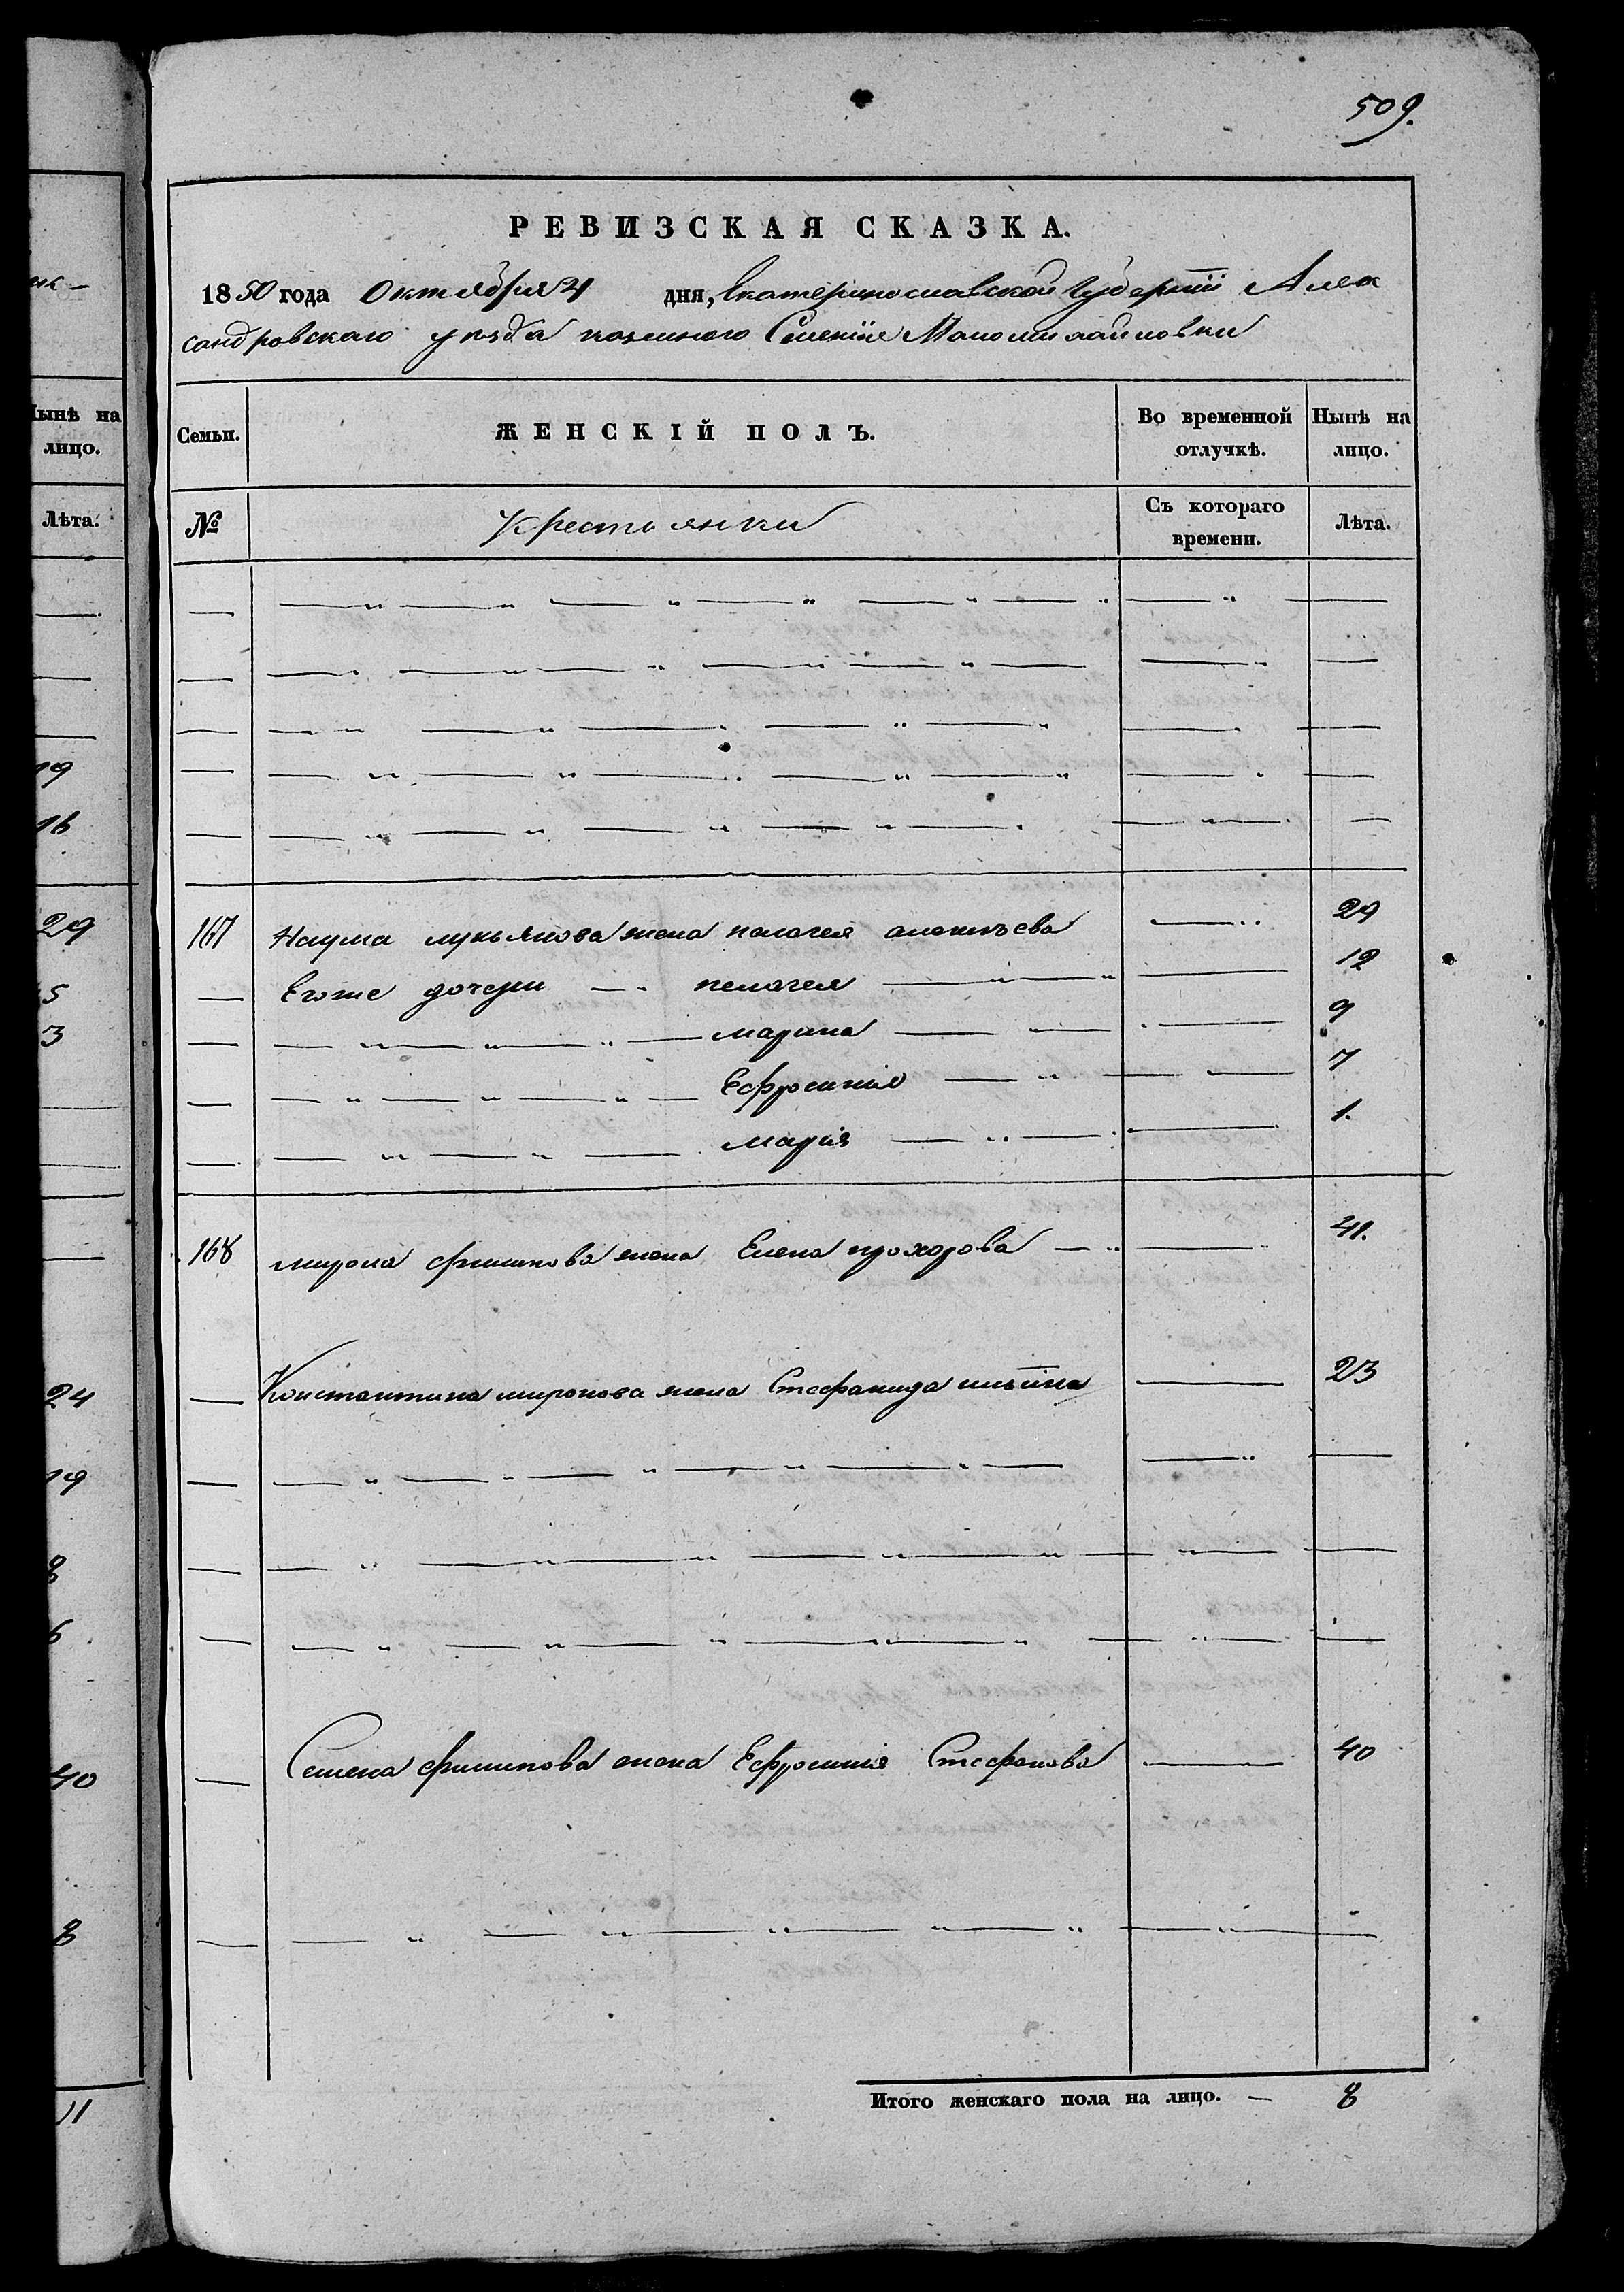 509.
РЕВИЗСКАЯ СКАЗКА.
1850 года Октября 21 дня, Екатеринославской Губерніи Алек
сандровскаго уѣзда казенного Селенія Маломихайловки
Семьи.
ЖЕНСКІЙ ПОЛЪ.
Во временной отлучкѣ.
Нынѣ на лицо.
№
Крестьянки
Съ котораго времени.
Лѣта.
167 Наума лукьянова жена пелагея алексѣева — 29
— Егоже дочери — пелагея — 12
— марина — 9
— Ефросинія — 7
— марія — 1.
168 мирона филипова жена Елена прохорова — 41.
— Константина миронова жена Стефанида ильина — 23
— Семена филипова жена Ефросинія Стефанова — 40
Итого женскаго пола на лицо. — 8
Нынѣ на
лицо.
Лѣта.
19
16
29
5
3
24
19
8
6
40
8
11